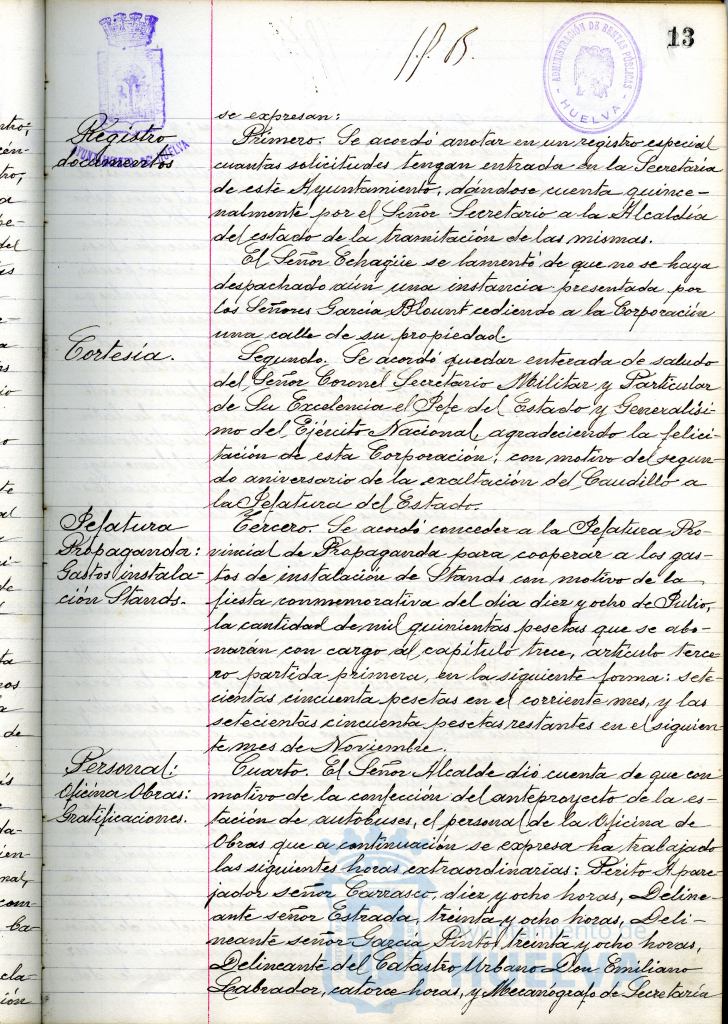 13
ADMINISTRACIÓN DE RENTAS PÚBLICAS
HUELVA
AYUNTAMIENTO DE HUELVA
se expresan:
Registro
documentos
Primero. Se acordó anotar en un registro especial
cuantas solicitudes tengan entrada en la Secretaría
de este Ayuntamiento, dándose cuenta quince-
nalmente por el Señor Secretario a la Alcaldía
del estado de la tramitación de las mismas.
El Señor Echagüe se lamentó de que no se haya
despachado aún una instancia presentada por
los Señores García Blount cediendo a la Corporación
una calle de su propiedad.
Cortesía.
Segundo. Se acordó quedar enterada de saludo
del Señor Coronel Secretario Militar y Particular
de Su Excelencia el Jefe del Estado y Generalísi-
mo del Ejército Nacional, agradeciendo la felici-
tación de esta Corporación, con motivo del segun-
do aniversario de la exaltación del Caudillo a
la Jefatura del Estado.
Jefatura
Propaganda:
Gastos instala-
ción Stands.
Tercero. Se acordó conceder a la Jefatura Pro-
vincial de Propaganda para cooperar a los gas-
tos de instalación de Stands con motivo de la
fiesta conmemorativa del día diez y ocho de Julio,
la cantidad de mil quinientas pesetas que se abo-
narán con cargo al capítulo trece, artículo terce-
ro partida primera, en la siguiente forma: sete-
cientas cincuenta pesetas en el corriente mes, y las
setecientas cincuenta pesetas restantes en el siguien-
te mes de Noviembre.
Personal:
Oficina Obras:
Gratificaciones.
Cuarto. El Señor Alcalde dio cuenta de que con
motivo de la confección del anteproyecto de la es-
tación de autobuses, el personal de la Oficina de
Obras que a continuación se expresa ha trabajado
las siguientes horas extraordinarias: Perito Apare-
jador señor Carrasco, diez y ocho horas, Deline-
ante señor Estrada, treinta y ocho horas, Deli-
neante señor García Pinto, treinta y ocho horas,
Delineante del Catastro Urbano Don Emiliano
Labrador, catorce horas, y Mecanógrafo de Secretaría
Ayuntamiento de
HUELVA